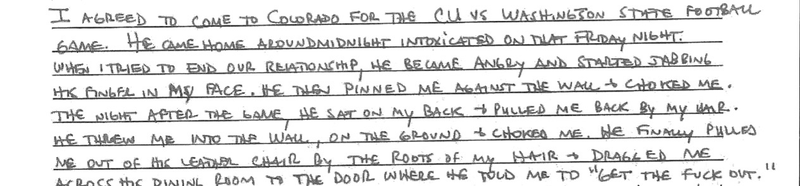 I AGREED TO COME TO COLORADO FOR THE CU VS WASHINGTON STATE FOOTBALL
GAME. HE CAME HOME AROUND MIDNIGHT INTOXICATED ON THAT FRIDAY NIGHT.
WHEN I TRIED TO END OUR RELATIONSHIP, HE BECAME ANGRY AND STARTED JABBING
HIS FINGER IN MY FACE. HE THEN PINNED ME AGAINST THE WALL + CHOKED ME.
THE NIGHT AFTER THE GAME, HE SAT ON MY BACK + PULLED ME BACK BY MY HAIR.
HE THREW ME INTO THE WALL, ON THE GROUND + CHOKED ME. HE FINALLY PULLED
ME OUT OF HIS LEATHER CHAIR BY THE ROOTS OF MY HAIR + DRAGGED ME
ACROSS HIS DINING ROOM TO THE DOOR WHERE HE TOLD ME TO "GET THE FUCK OUT."